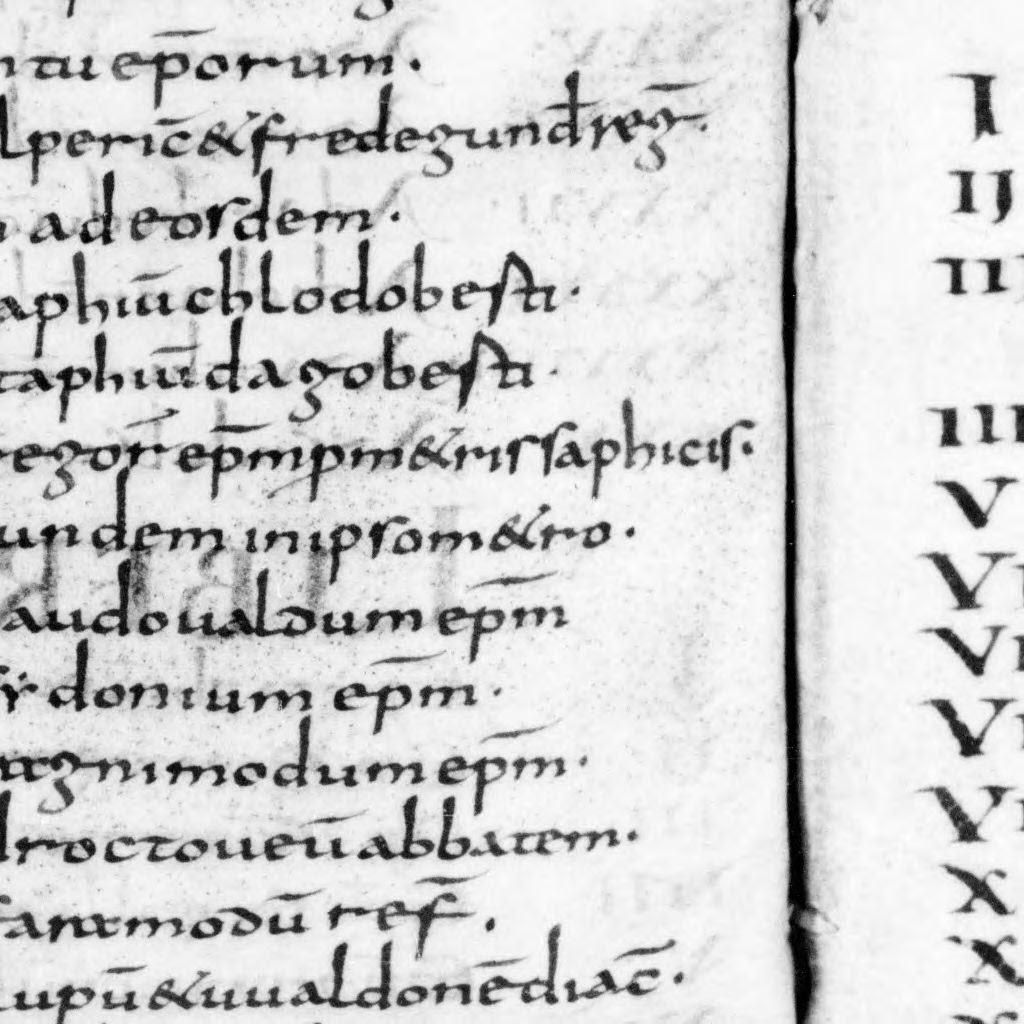 ntu ep̄orum.
lperic̄ & fredegund̄ reḡ.
ad eosdem.
aphiū chlodobesti.
taphiū dagobesti.
egor̄ ep̄m pm & ris saphicis.
undem in ipso m&ro.
audoualdum ep̄m
donium ep̄m.
gnimodum ep̄m.
droctoueū abbatem.
faramodū ref̄.
lupū & uualdonē diac̄.
I
IJ
III
IIII
V
VI
VI
VI
VI
X
X